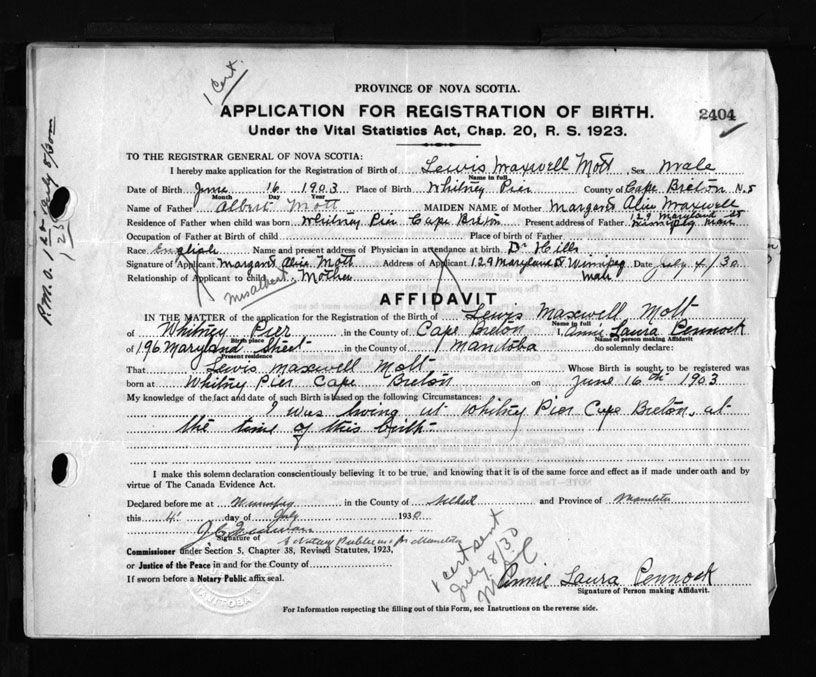 1 Cert.
PROVINCE OF NOVA SCOTIA.
APPLICATION FOR REGISTRATION OF BIRTH.
2404
Under the Vital Statistics Act, Chap. 20, R. S. 1923.
TO THE REGISTRAR GENERAL OF NOVA SCOTIA:
I hereby make application for the Registration of Birth of Lewis Maxwell Mott Sex Male
Name in full
Date of Birth June 16 1903 Place of Birth Whitney Pier County of Cape Breton N.S
Month Day Year
Name of Father Albert Mott MAIDEN NAME of Mother Margaret Alice Maxwell
Residence of Father when child was born Whitney Pier Cape Breton Present address of Father 129 Maryland St Winnipeg Man
Occupation of Father at Birth of child Place of birth of Father
Race English Name and present address of Physician in attendance at birth, Dr Hills
Signature of Applicant Margaret Alice Mott Address of Applicant 129 Maryland St Winnipeg Man Date July 4/30
Relationship of Applicant to child, Mother
Mrs Albert
AFFIDAVIT
IN THE MATTER of the application for the Registration of the Birth of Lewis Maxwell Mott
Name in full
of Whitney Pier in the County of Cape Breton I Annie Laura Pennock
Birth place Name of person making Affidavit
of 196 Maryland Street in the County of Manitoba do solemnly declare:
Present residence
That Lewis Maxwell Mott Whose Birth is sought to be registered was
born at Whitney Pier Cape Breton on June 16th 1903
My knowledge of the fact and date of such Birth is based on the following Circumstances:
I was living at Whitney Pier Cape Breton, at
the time of this birth
I make this solemn declaration conscientiously believing it to be true, and knowing that it is of the same force and effect as if made under oath and by
virtue of The Canada Evidence Act.
Declared before me at Winnipeg in the County of and Province of Manitoba
this 4 day of July 1930
Signature of
A Notary Public in & for Manitoba
Commissioner under Section 5, Chapter 38, Revised Statutes, 1923,
or Justice of the Peace in and for the County of
If sworn before a Notary Public affix seal.
MANITOBA
1 cert sent
July 8/30
Annie Laura Pennock
Signature of Person making Affidavit.
For Information respecting the filling out of this Form, see Instructions on the reverse side.